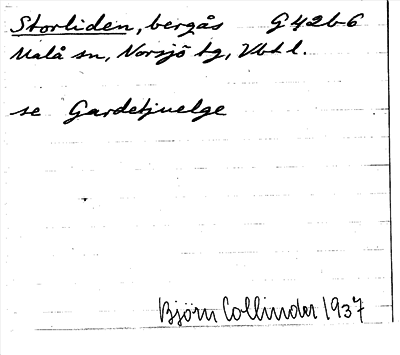 Storliden, bergås G 42b-6
Malå sn, Norsjö tg, Vbt l.
se Gardetjuelge
Björn Collinder 1937